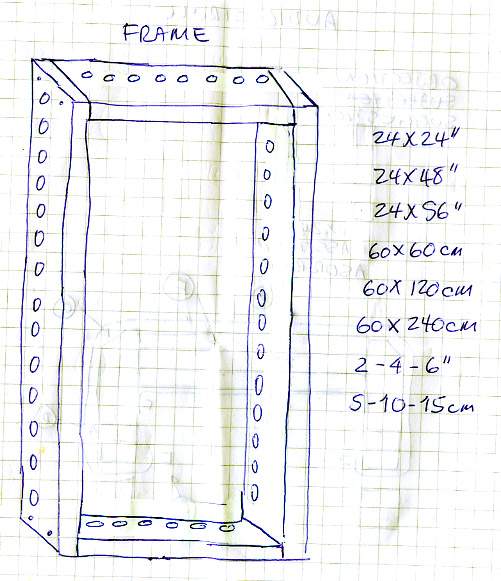 FRAME
24X24"
24X48"
24X56"
60X60cm
60X120cm
60X240cm
2-4-6"
5-10-15cm